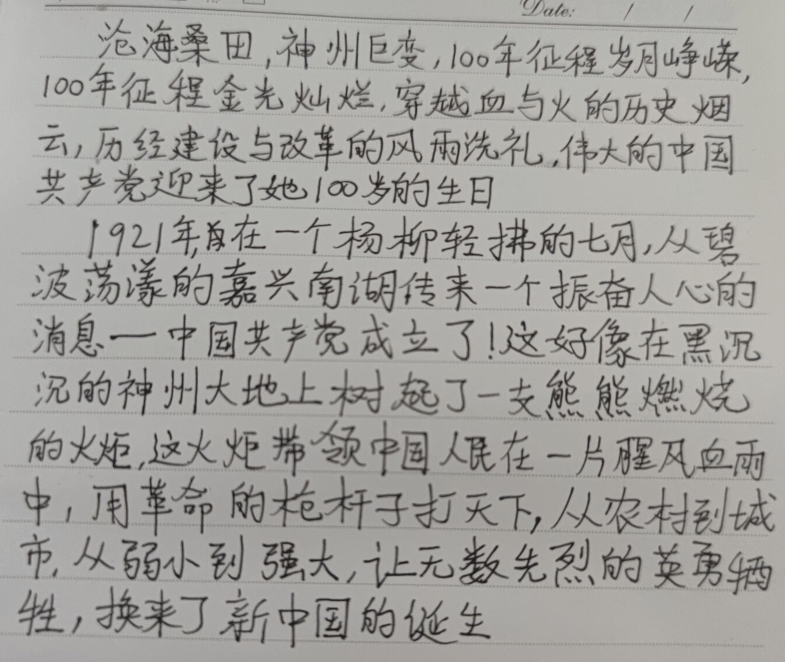 Date: / /
沧海桑田,神州巨变,100年征程岁月峥嵘,
100年征程金光灿烂.穿越血与火的历史烟
云,历经建设与改革的风雨洗礼,伟大的中国
共产党迎来了她100岁的生日
1921年,在一个杨柳轻拂的七月,从碧
波荡漾的嘉兴南湖传来一个振奋人心的
消息一中国共产党成立了!这好像在黑沉
沉的神州大地上树起了一支熊熊燃烧
的火炬,这火炬带领中国人民在一片腥风血雨
中,用革命的枪杆子打天下,从农村到城
市,从弱小到强大,让无数先烈的英勇牺
牲,换来了新中国的诞生